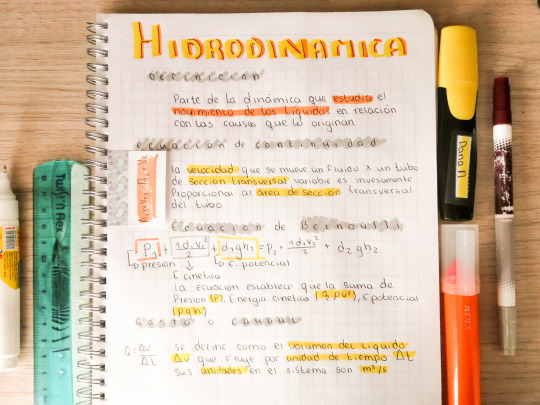 HIDRODINAMICA
Definicion
Parte de la dinámica que estudia el
movimiento de los líquidos en relación
con las causas que lo originan
ecuacion de continuidad
la velocidad que se mueve un fluido x un tubo
de sección transversal variable es inversamente
Proporcional al área de sección transversal
del tubo
Ecuacion de Bernoulli
P₁ + 1d₁V₁²/2 + d₁gh₁ = P₂ + 1d₂V₂²/2 + d₂gh₂
presión
E potencial
E cinetica
la ecuacion establece que la suma de
Presion (P), Energia cinetica (½ρv²), E potencial
(ρgh)
Gasto o caudal
Q = Δv/Δt
se define como el volumen del líquido
Δv que fluye por unidad de tiempo Δt
sus unidades en el sistema son m³/s
Twist'n Flex
Dana A